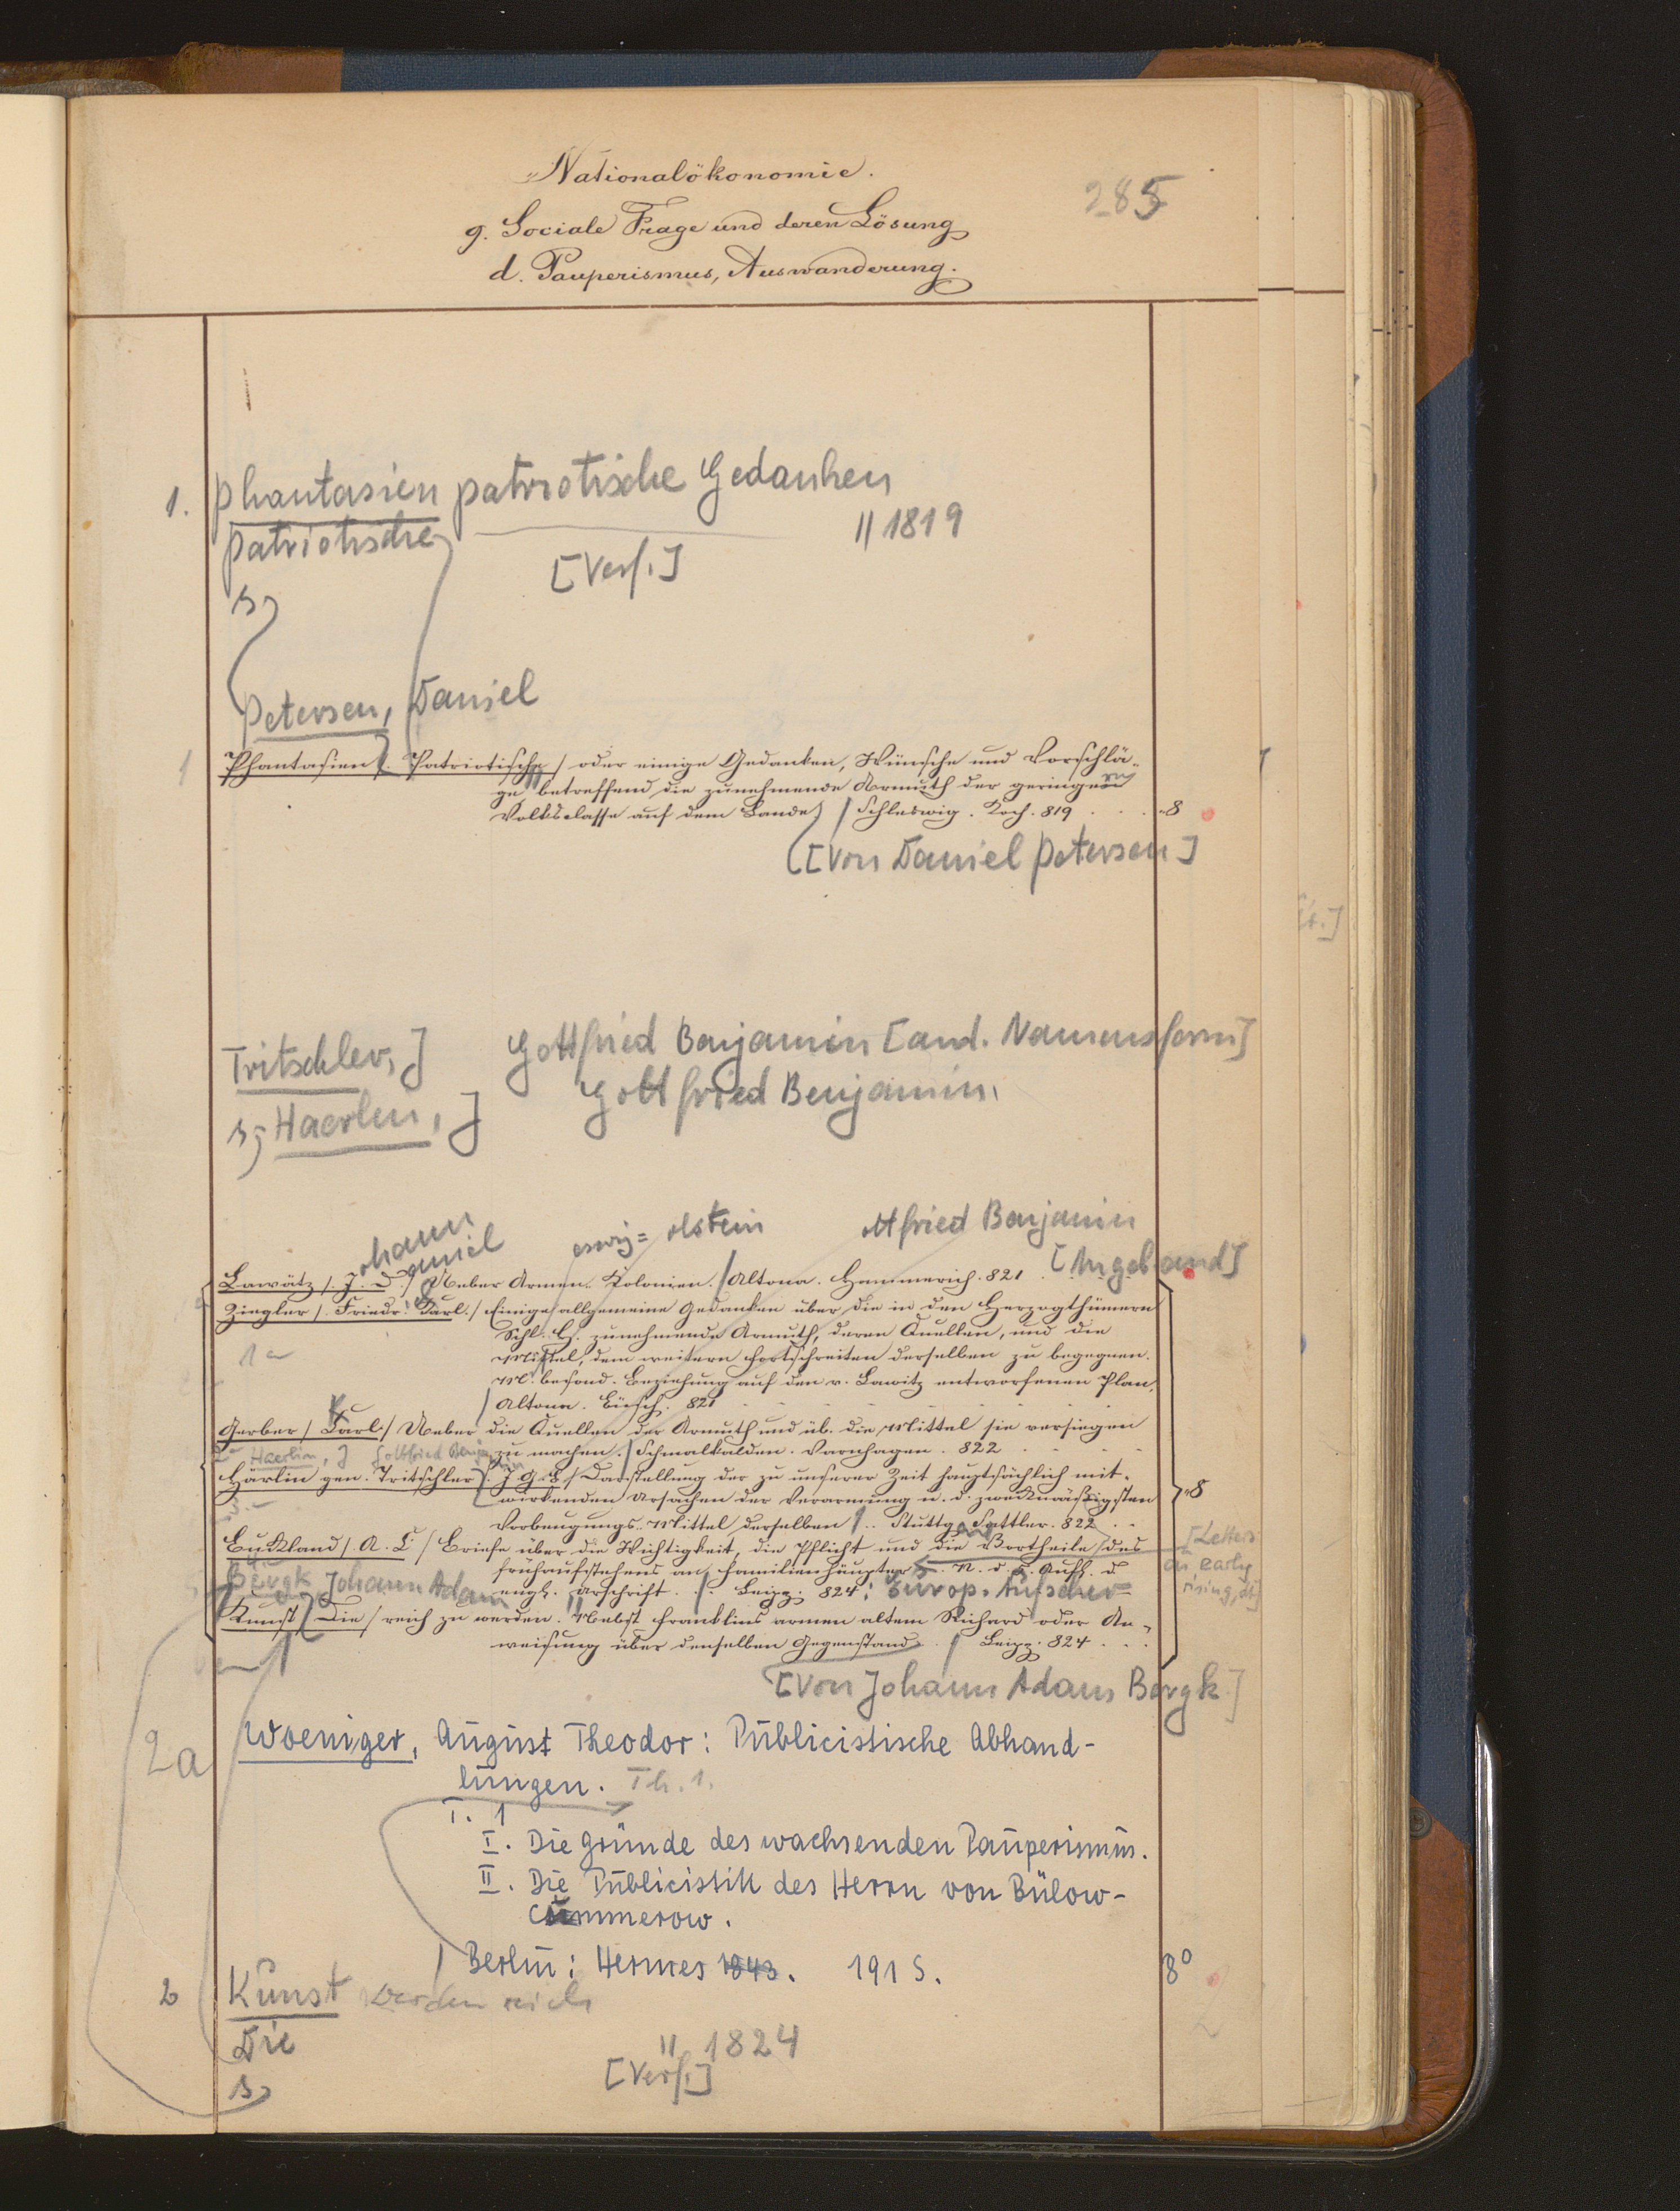 Nationalökonomie.
285
g. Sociale Frage und deren Lösung
d. Pauperismus, Auswanderung.
1. Phantasien patriotische Gedanken
patriotische
|| 1819
[Verf.]
s.
Petersen, Daniel
1 Phantasien, Patriotische / oder einige Gedanken, Wünsche und Vorschlä-
ge betreffend die zunehmende Armuth der geringern
Volksclasse auf dem Lande / Schleswig. Koch. 819 . . . 8
[Von Daniel Petersen]
Tritschler, J Gottfried Benjamin [and. Namensform]
s. Haerlin, J Gottfried Benjamin.
ohann
aniel
eswig= olstein
ottfried Benjamin
[Angeb. and]
Lawätz /. J. D. / Ueber Armen-Kolonien. / Altona. Hammerich. 821 .
Ziegler /. Friedr. Karl. / Einige allgemeine Gedanken über die in den Herzogthümern
Schl. H. zunehmende Armuth, deren Quellen, und die
1a
Mittel, dem weitern Fortschreiten derselben zu begegnen.
M. besond. Beziehung auf den v. Lawätz entworfenen Plan,
/ Altona. Busch. 821
Gerber / Karl / Ueber die Quellen der Armuth und üb. die Mittel sie versiegen
zu machen. / Schmalkalden. Varnhagen. 822
Haerlin, J Gottfried Benjamin
Härlin gen. Tritschler /. J. G. B. / Darstellung der zu unserer Zeit hauptsächlich mit-
wirkenden Ursachen der Verarmung u. d. zweckmäßigsten 8
Vorbeugungs-Mittel derselben /. Stuttg. Sattler. 822
Buckland /. A. C / Briefe über die Wichtigkeit, die Pflicht und die Vortheile / des
[Letters
frühaufstehens an Familienhäupter. N. d. 5. Aufl. d
on early
engl. Urschrift. / Leipz. 824: Europ. Aufseher
rising, dt]
Bergk, Johann Adam
Kunst / Die / reich zu werden. Nebst Franklins armen altem Richard oder An-
weisung über denselben Gegenstand. / Leipz. 824 . . .
[Von Johann Adam Bergk]
2a Woeniger, August Theodor: Publicistische Abhand-
lungen. Th. 1.
T. 1
I. Die Gründe des wachsenden Pauperismus.
II. Die Publicistik des Herrn von Bülow-
Cummerow.
/ Berlin: Hermes 1843. 191 S. 8°
2 Kunst werden reich
Die
|| 1824
[Verf.]
s.